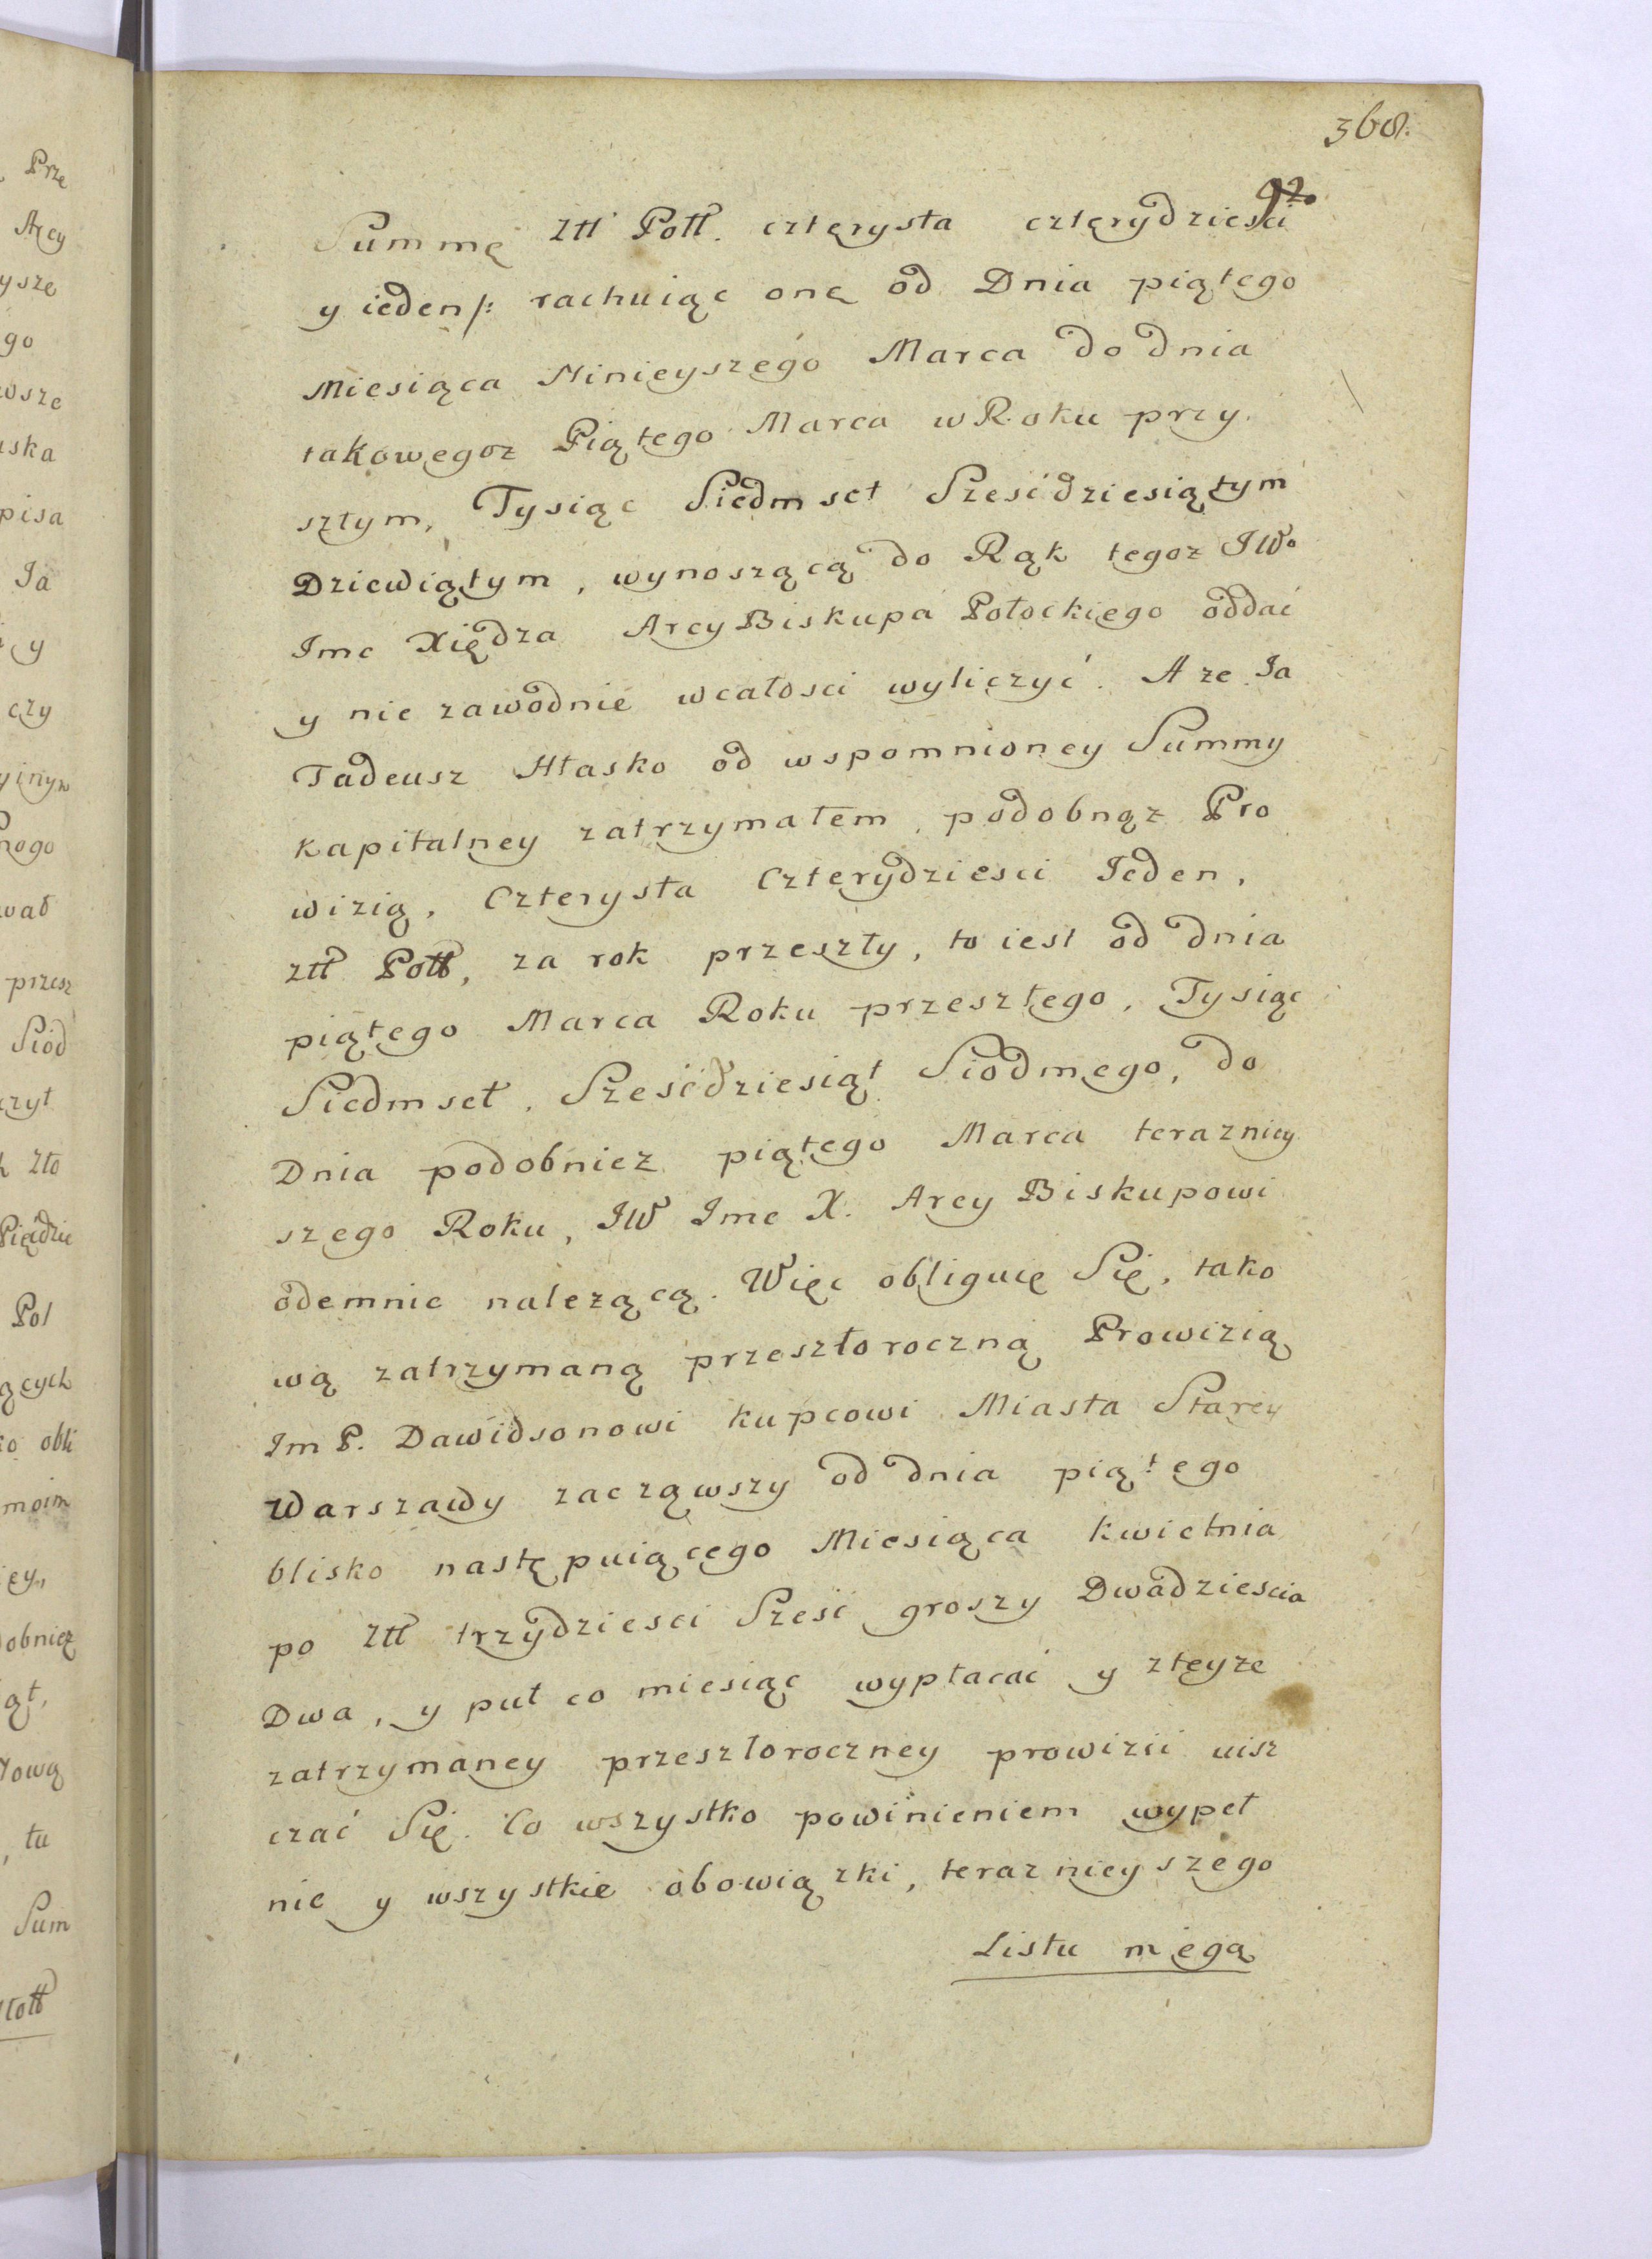 368.
92.
Summę Ztł Poll. czterysta czterydziesci
y ieden /: rachuiąc onę od Dnia piątego
Miesiąca Ninieyszego Marca do dnia
takowegoz Piątego Marca w Roku przy
szłym, Tysiąc Siedmset Sześćdziesiątym
Dziewiątym, wynoszącą do Rąk tegoz JWo
Imc Xiędza ArcyBiskupa Połockiego oddać
y nie zawodnie wcałosci wyliczyć. A ze Ja
Tadeusz Hłasko od wspomnioney Summy
kapitalney zatrzymałem, podobnąz Pro
wizią, Czterysta Czterydziesci Jeden,
ztł Poll, za rok przeszły, to iest od dnia
piątego Marca Roku przeszłego, Tysiąc
Siedmset, Sześćdziesiąt Siodmego, do
Dnia podobniez piątego Marca terazniey
szego Roku, JW Imc X. Arcy Biskupowi
odemnie nalezącą. Więc obliguię Się, tako
wą zatrzymaną przeszłoroczną Prowizią
Im P. Dawidsonowi kupcowi Miasta Starey
Warszawy zacząwszy od dnia piątego
blisko następuiącego Miesiąca kwietnia
po Ztł trzydziesci Sześć groszy Dwadziescia
Dwa, y puł co miesiąc wypłacać y zteyze
zatrzymaney przeszłoroczney prowizii uisz
czać Się. Co wszystko powinieniem wypeł
nic y wszystkie obowiązki, teraznieyszego
Listu mega
Prze
Arcy
ysze
go
wsze
uska
pisa
Ja
y
czy
yinyn
nogo
wał
przesz
Siod
czyt
Zło
Pięćdzie
Pol
ących
ko obli
moim
iey,
obniez
ąt,
, tu
Sum